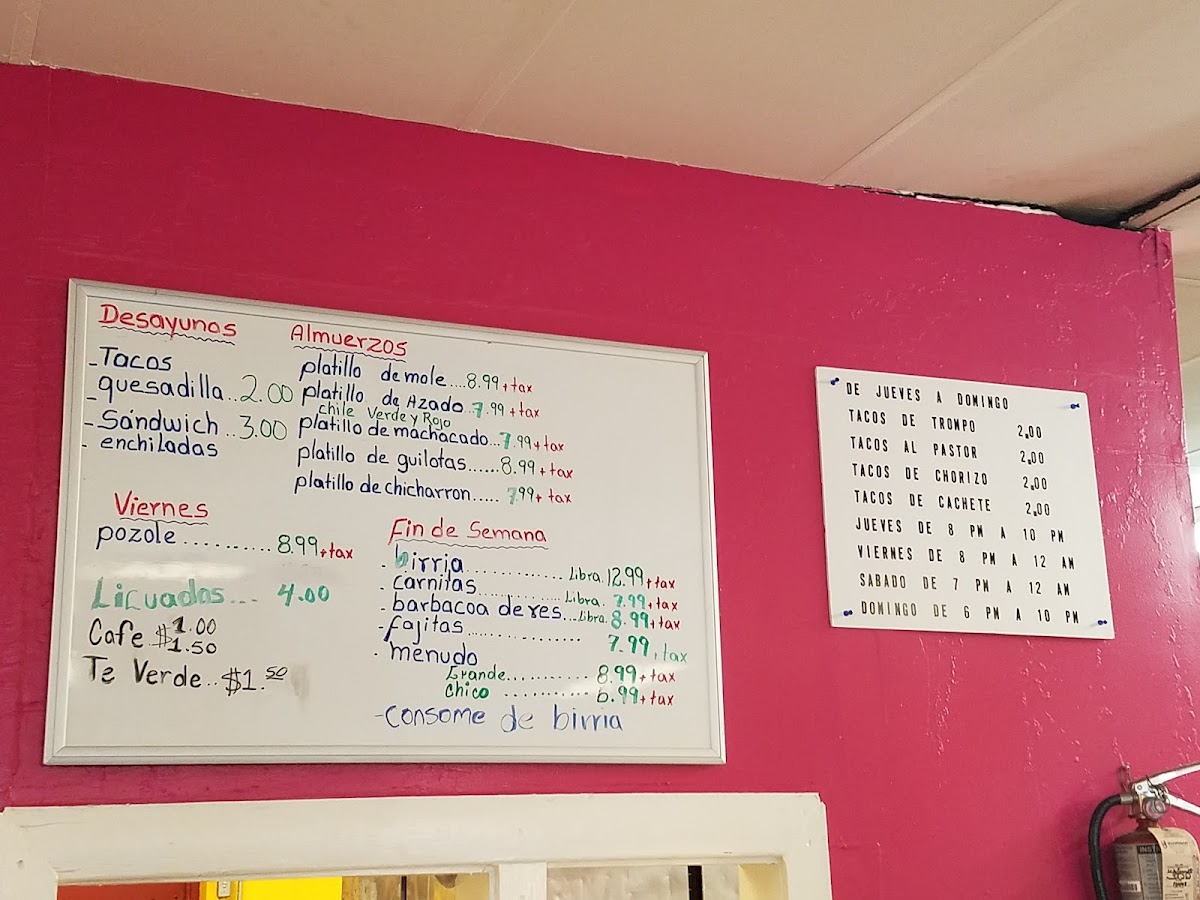 Desayunos
- Tacos
- quesadilla..2.00
- Sándwich..3.00
- enchiladas
Almuerzos
platillo de mole....8.99 + tax
platillo de Azado..7.99 + tax
chile Verde y Rojo
platillo de machacado...7.99 + tax
platillo de guilotas......8.99 + tax
platillo de chicharron..... 7.99 + tax
Viernes
pozole...........8.99 + tax
Licuados... 4.00
Cafe $1.00
$1.50
Te Verde..$1.50
Fin de Semana
- birria............Libra.12.99 + tax
- carnitas............Libra. 7.99 + tax
- barbacoa de res...Libra.8.99 + tax
- fajitas.............. 7.99 + tax
- menudo
Grande.......... 8.99 + tax
chico ........... 6.99 + tax
- consome de birria
DE JUEVES A DOMINGO
TACOS DE TROMPO 2.00
TACOS AL PASTOR 2.00
TACOS DE CHORIZO 2.00
TACOS DE CACHETE 2.00
JUEVES DE 8 PM A 10 PM
VIERNES DE 8 PM A 12 AM
SABADO DE 7 PM A 12 AM
DOMINGO DE 6 PM A 10 PM